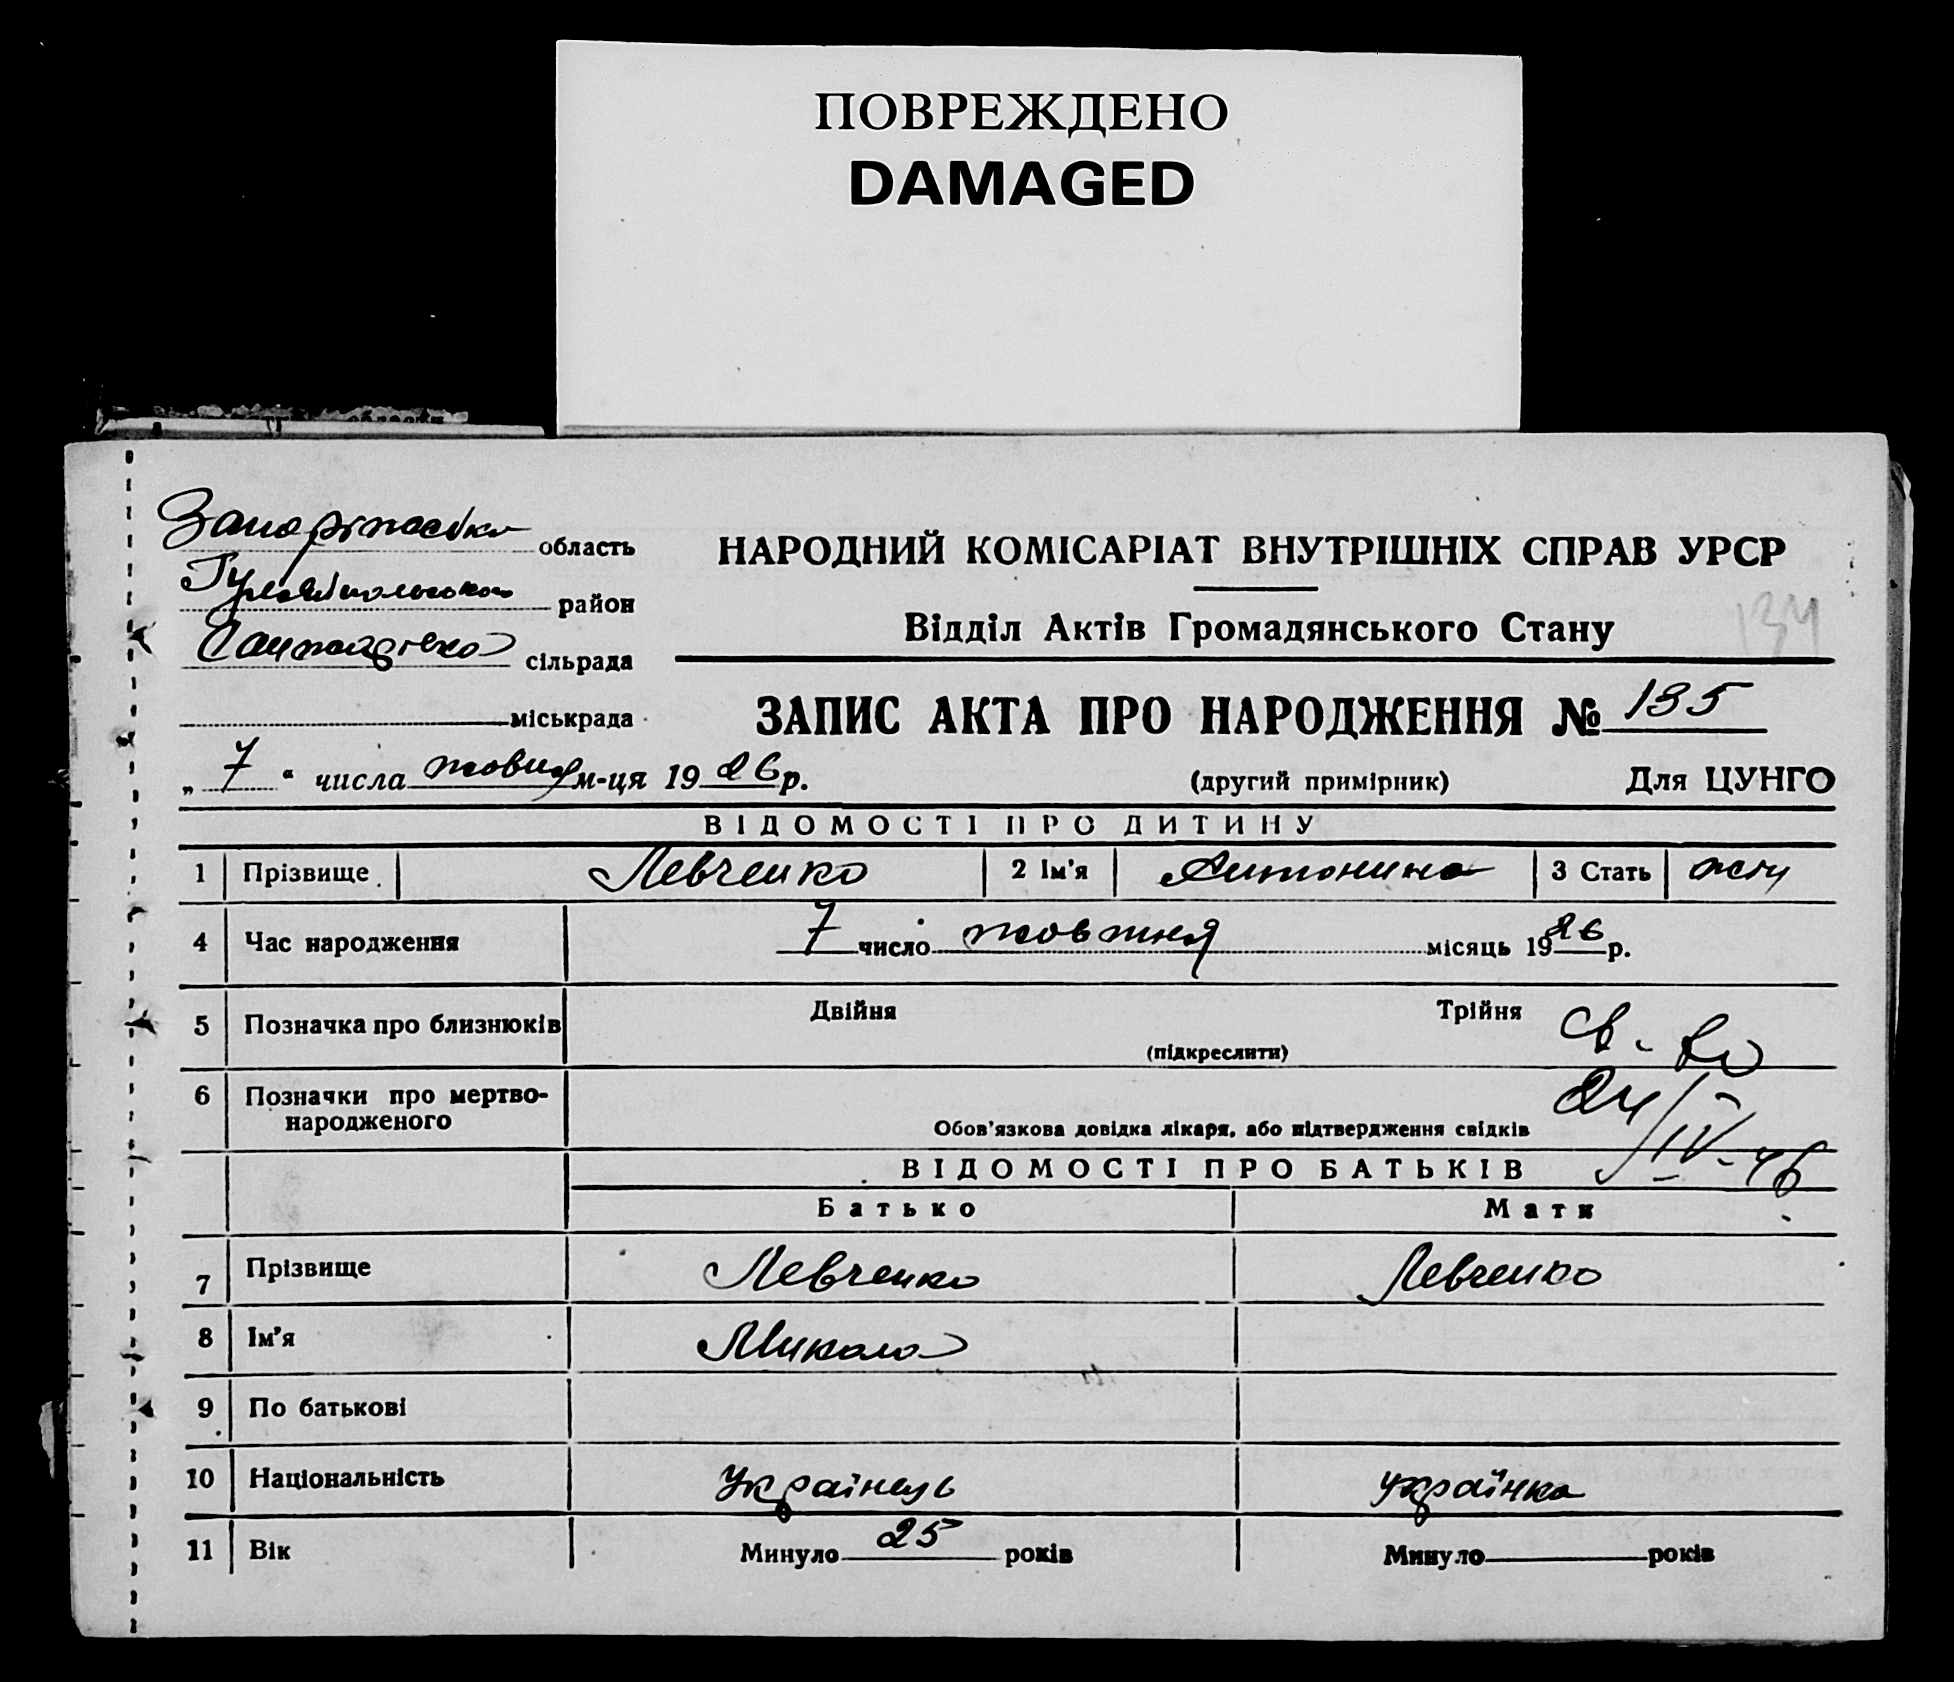 ПОВРЕЖДЕНО
DAMAGED
Запорізська область
Гуляйпольського район
сільрада
міськрада
НАРОДНИЙ КОМІСАРІАТ ВНУТРІШНІХ СПРАВ УРСР
Відділ Актів Громадянського Стану
134
ЗАПИС АКТА ПРО НАРОДЖЕННЯ № 135
„ 7 “ числа жовтня м-ця 1926 р.
(другий примірник) Для ЦУНГО
ВІДОМОСТІ ПРО ДИТИНУ
1 Прізвище Левченко 2 Ім'я Антонина 3 Стать жін
4 Час народження 7 число жовтня місяць 1926 р.
5 Позначка про близнюків Двійня Трійня
(підкреслити)
св-во
24/IV-46
6 Позначки про мертво-
народженого
Обов'язкова довідка лікаря, або підтвердження свідків
ВІДОМОСТІ ПРО БАТЬКІВ
Батько Мати
7 Прізвище Левченко Левченко
8 Ім'я Микола
9 По батькові
10 Національність Українець українка
11 Вік Минуло 25 років Минуло років